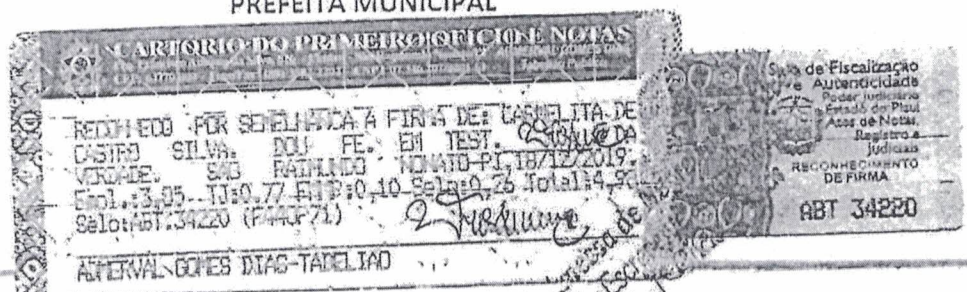 PREFEITA MUNICIPAL
CARTORIO DO PRIMEIRO OFICIO DE NOTAS
RECONHECO POR SEMELHANCA A FIRMA DE: CARMELITA DE
CASTRO SILVA. DOU FE. EM TEST. DA
VERDADE. SAO RAIMUNDO NONATO-PI, 18/12/2019.
Emol.:3,85 TJ:0,77 FMMP:0,10 Selo:0,26 Total:4,98
Selo:ABT.34220
ADMERVAL GOMES DIAS-TABELIAO
Selo de Fiscalização
e Autenticidade
Poder Judiciário
Estado do Piauí
Atos de Notas,
Registro e
Judiciais
RECONHECIMENTO
DE FIRMA
ABT 34220